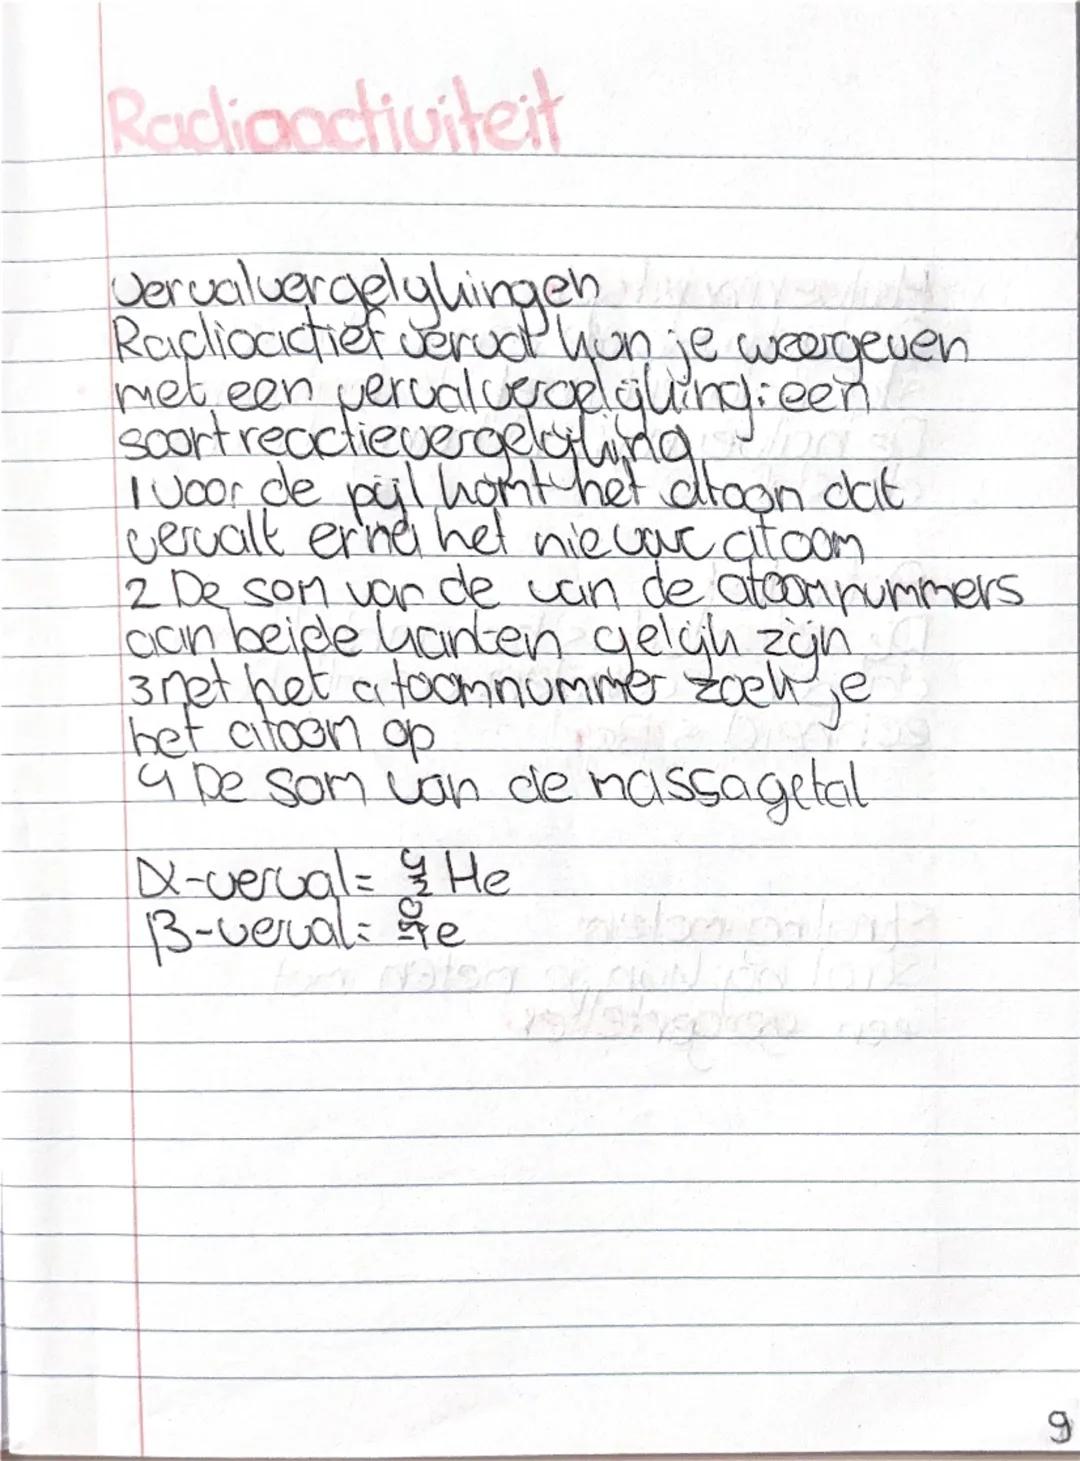 Radioactiviteit
Vervalvergelykingen
Radioactief verval kan je weergeven
met een vervalvergelijking: een
soort reactievergelijking
1 Voor de pijl komt het atoon dat
vervalt erna het nieuwe atoom
2 De som van de van de atoomnummers
aan beide kanten gelijk zijn
3 met het atoomnummer zoek je
het atoom op
4 De som van de massagetal
α-verval= ⁴₂He
β-verval= ⁰₋₁e
9